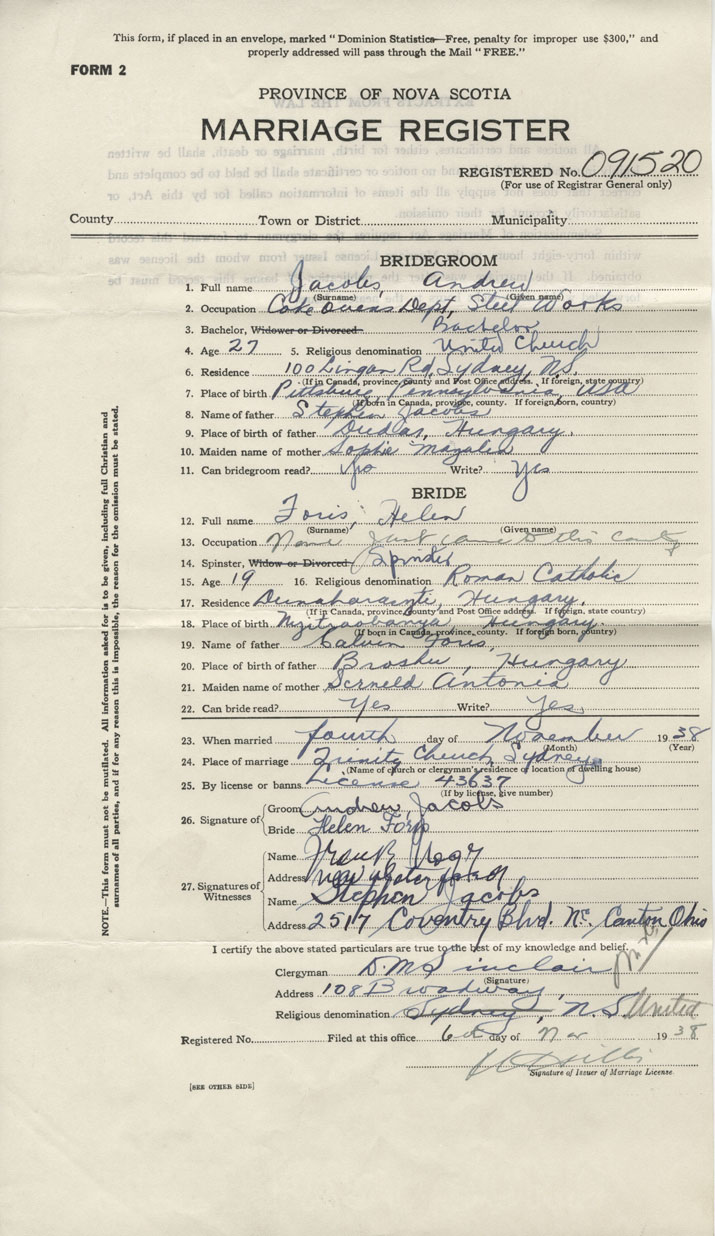 This form, if placed in an envelope, marked "Dominion Statistics—Free, penalty for improper use $300," and
properly addressed will pass through the Mail "FREE."
FORM 2
PROVINCE OF NOVA SCOTIA
MARRIAGE REGISTER
REGISTERED No. 091520
(For use of Registrar General only)
County Town or District Municipality
BRIDEGROOM
1. Full name Jacobs, Andrew
(Surname) (Given name)
2. Occupation Coke Ovens Dept, Steel Works
3. Bachelor, Widower or Divorced Bachelor
4. Age 27 5. Religious denomination United Church
6. Residence 100 Lingan Rd, Sydney, N.S.
(If in Canada, province, County and Post Office address. If foreign, state country)
7. Place of birth Pittsburg Pennsylvania, USA
(If born in Canada, province, county. If foreign born, country)
8. Name of father Stephen Jacobs
9. Place of birth of father Dudas, Hungary.
10. Maiden name of mother Sophie
11. Can bridegroom read? Write? Yes
BRIDE
12. Full name Foris, Helen
(Surname) (Given name)
13. Occupation None Just came to this country
14. Spinster, Widow or Divorced Spinster
15. Age 19 16. Religious denomination Roman Catholic
17. Residence Dunaharaszti, Hungary.
(If in Canada, province, County and Post Office address. If foreign, state country)
18. Place of birth Hungary.
(If born in Canada, province, county. If foreign born, country)
19. Name of father Calvin Foris,
20. Place of birth of father Hungary
21. Maiden name of mother Antonia
22. Can bride read? Yes Write? Yes
23. When married fourth day of November 1938
(Month) (Year)
24. Place of marriage Trinity Church, Sydney
(Name of church or clergyman's residence or location of dwelling house)
25. By license or banns License 43637
(If by license, give number)
26. Signature of Groom Andrew Jacobs
Bride Helen
27. Signatures of Witnesses Name
Address
Name Stephen Jacobs
Address 2517 Coventry Blvd. N.E. Canton Ohio
I certify the above stated particulars are true to the best of my knowledge and belief.
Clergyman D. M. Sinclair
(Signature)
Address 108 Broadway
Religious denomination Sydney, N.S. United
Registered No. Filed at this office 6th day of Nov 1938
Signature of Issuer of Marriage License.
[SEE OTHER SIDE]
NOTE.—This form must not be mutilated. All information asked for is to be given, including full Christian and
surnames of all parties, and if for any reason this is impossible, the reason for the omission must be stated.